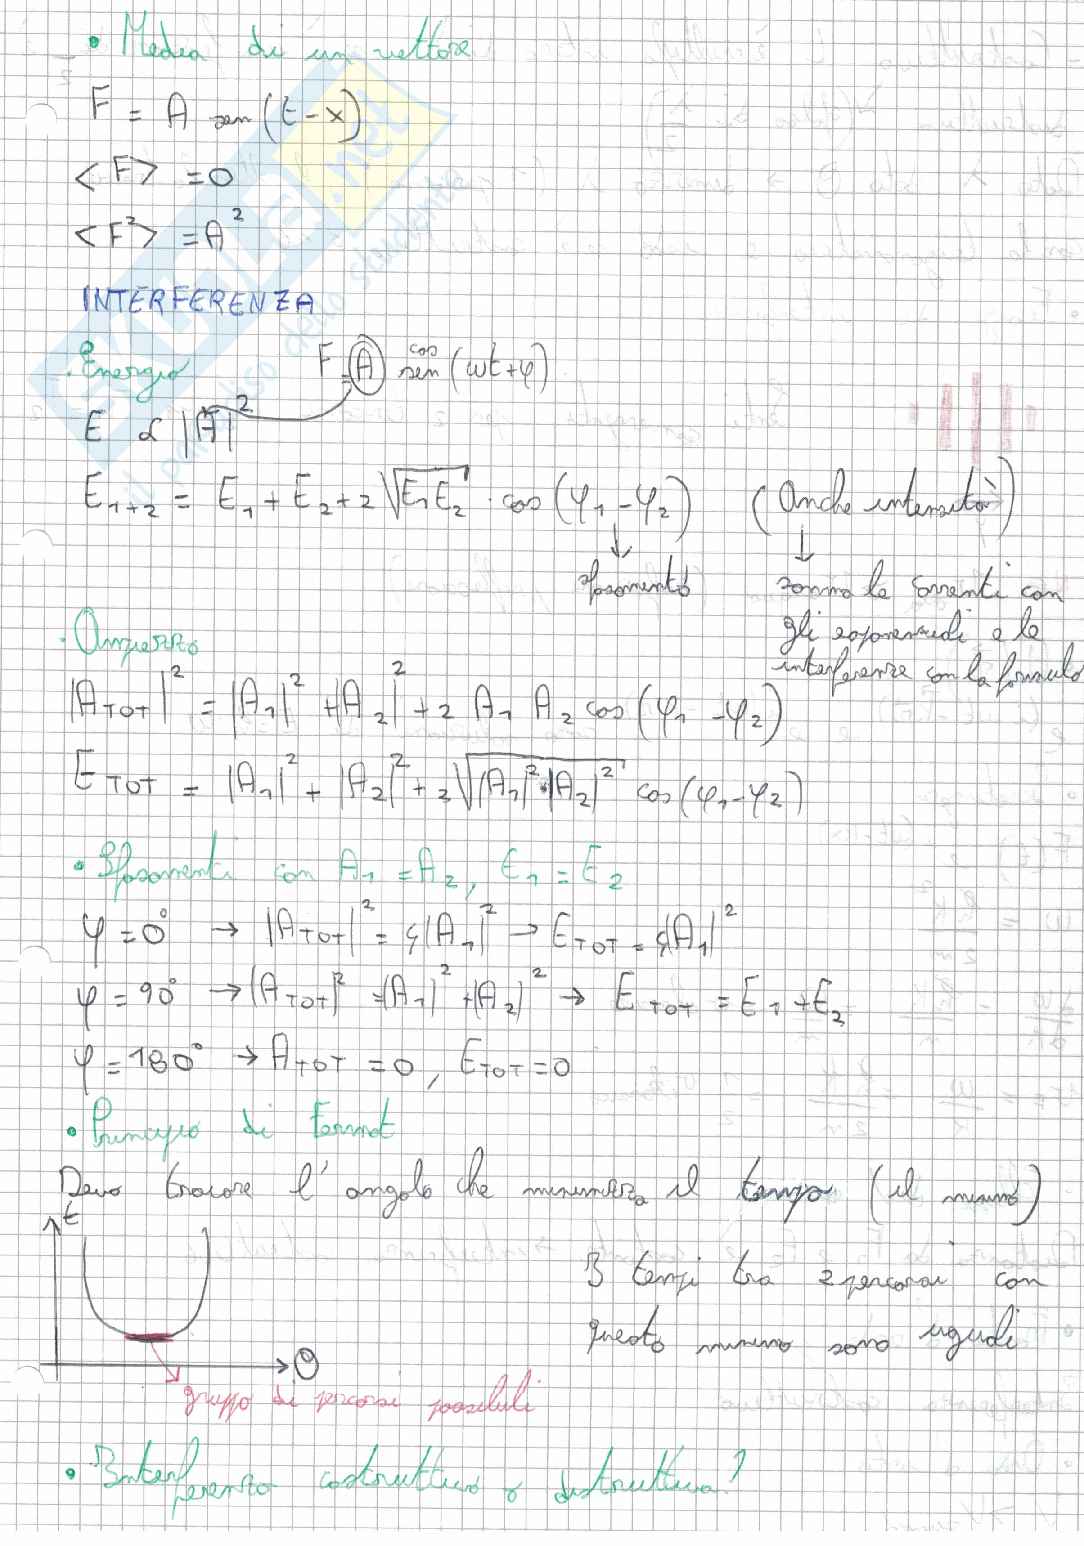 • Media di un vettore
F = A sen (t - x)
<F> = 0
<F²> = A²
INTERFERENZA
• Energia F = A cos sen (ωt + φ)
E ∝ |A|²
E₁₊₂ = E₁ + E₂ + 2 √E₁E₂ · cos (φ₁ - φ₂) (Anche intensità)
sfasamento
sommo le correnti con
gli esponenziali e le
interferenze con la formula
• Ampiezza
|A_TOT|² = |A₁|² + |A₂|² + 2 A₁ A₂ cos (φ₁ - φ₂)
E_TOT = |A₁|² + |A₂|² + 2 √|A₁|² · |A₂|² cos (φ₁ - φ₂)
• Sfasamenti con A₁ = A₂, E₁ = E₂
φ = 0° → |A_TOT|² = 4|A₁|² → E_TOT = 4|A₁|²
φ = 90° → |A_TOT|² = |A₁|² + |A₂|² → E_TOT = E₁ + E₂
φ = 180° → A_TOT = 0, E_TOT = 0
• Principio di Fermat
Devo trovare l'angolo che minimizza il tempo (il minimo)
t
I tempi tra 2 percorsi con
questo minimo sono uguali
θ
gruppo di percorsi possibili
• Interferenza costruttiva o distruttiva?